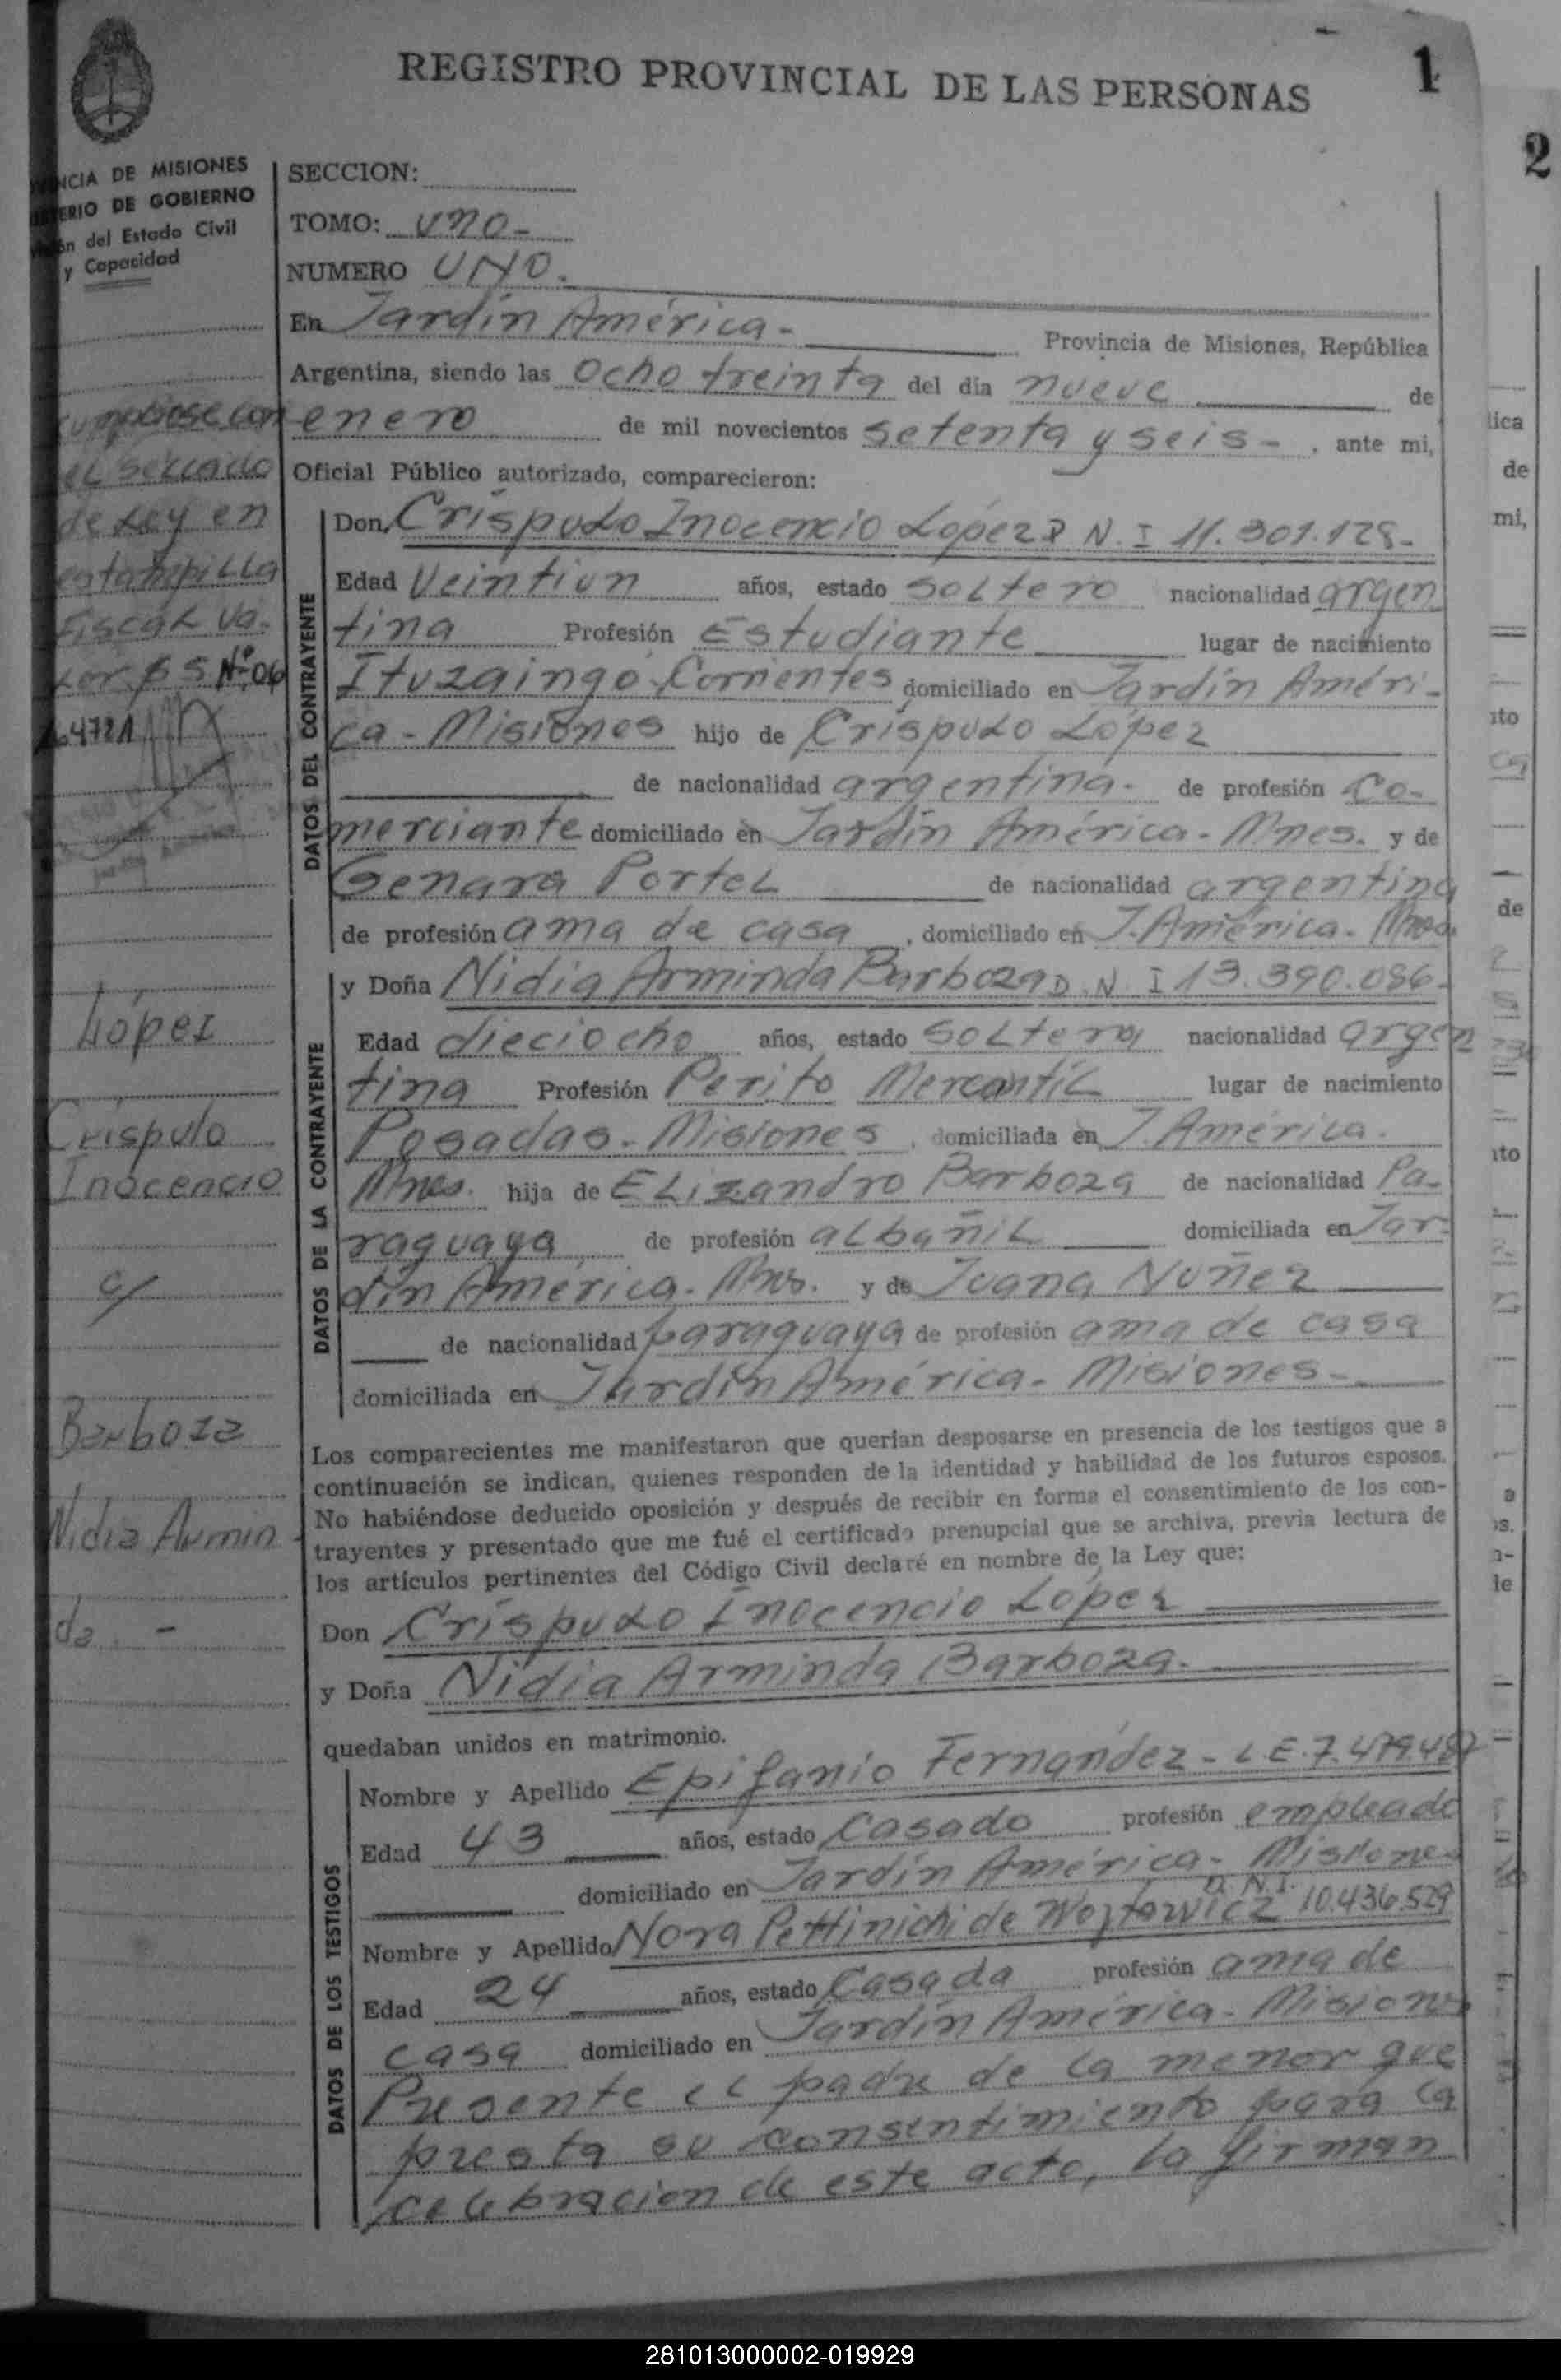 REGISTRO PROVINCIAL DE LAS PERSONAS
1
2
NCIA DE MISIONES
ERIO DE GOBIERNO
ón del Estado Civil
y Capacidad
SECCION:
TOMO: uno-
NUMERO UNO.
En Jardín América- Provincia de Misiones, República
Argentina, siendo las ocho treinta del día nueve de
enero de mil novecientos setenta y seis-, ante mi,
Oficial Público autorizado, comparecieron:
DATOS DEL CONTRAYENTE
Don Críspulo Inocencio López D N. I 11.301.128-
Edad Veintiun años, estado soltero nacionalidad argen
tina Profesión Estudiante lugar de nacimiento
Ituzaingó-Corrientes domiciliado en Jardín Améri-
ca-Misiones hijo de Críspulo López
de nacionalidad argentina. de profesión Co-
merciante domiciliado en Jardín América-Mnes. y de
Genara Portel de nacionalidad argentina
de profesión ama de casa, domiciliado en J. América. Mnes.
DATOS DE LA CONTRAYENTE
y Doña Nidia Arminda Barboza D. N. I 13.390.086-
Edad dieciocho años, estado soltera nacionalidad argen
tina Profesión Perito Mercantíl lugar de nacimiento
Posadas-Misiones, domiciliada en J. América.
Mnes. hija de Elizandro Barboza de nacionalidad Pa-
raguaya de profesión albañil domiciliada en Jar-
dín América. Mns. y de Juana Nuñez
de nacionalidad paraguaya de profesión ama de casa
domiciliada en Jardín América-Misiones-
Los comparecientes me manifestaron que querían desposarse en presencia de los testigos que a
continuación se indican, quienes responden de la identidad y habilidad de los futuros esposos.
No habiéndose deducido oposición y después de recibir en forma el consentimiento de los con-
trayentes y presentado que me fué el certificado prenupcial que se archiva, previa lectura de
los artículos pertinentes del Código Civil declaré en nombre de la Ley que:
Don Críspulo Inocencio López
y Doña Nidia Arminda Barboza.
quedaban unidos en matrimonio.
DATOS DE LOS TESTIGOS
Nombre y Apellido Epifanio Fernández-L.E.7.479.487
Edad 43 años, estado Casado profesión empleado
domiciliado en Jardín América-Misiones
Nombre y Apellido Nora Pettinichi de Wojtowicz D.N.I. 10.436.529
Edad 24 años, estado Casada profesión ama de
casa domiciliado en Jardín América-Misiones
Presente el padre de la menor que
presta su consentimiento para la
celebración de este acto, la firman
el sellado
de Ley en
estampilla
Fiscal va-
lor $5 Nº06
López
Críspulo
Inocencio
c/
Barboza
Nidia Armin
da.-
281013000002-019929